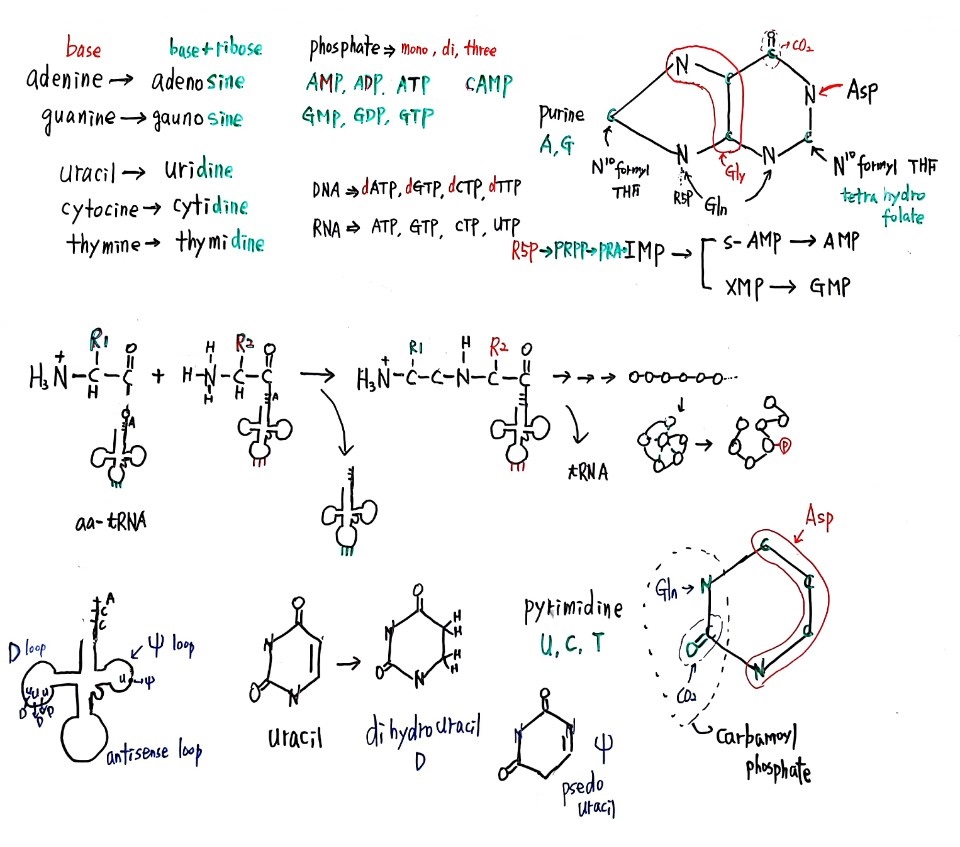 base base+ribose phosphate ⇒ mono, di, three
adenine → adenosine AMP, ADP, ATP cAMP
guanine → gaunosine GMP, GDP, GTP
uracil → uridine
cytocine → cytidine
thymine → thymidine
DNA ⇒ dATP, dGTP, dCTP, dTTP
RNA ⇒ ATP, GTP, CTP, UTP
purine
A, G
O → CO2
N C C
N ← Asp
C N C N C
N10 formyl
THF
R5P
Gln
Gly
N10 formyl THF
tetra hydro
folate
R5P → PRPP → PRA → IMP → S-AMP → AMP
XMP → GMP
R1 O R2 O R1 H R2 O
H3N+ - C - C + H - N - C - C → H3N+ - C - C - N - C - C → → → OOOOOO...
H H H
O A A
P
tRNA
aa-tRNA
A
C
C
D loop
Ψ loop
U → Ψ
U U U
D D D
antisense loop
O
N
O N
uracil
O H
N H
H
O N H
dihydrouracil
D
O
N N
O
Ψ
psedo
uracil
pyrimidine
U, C, T
Asp
C
Gln → N C
O C C
N
CO2
Carbamoyl
phosphate